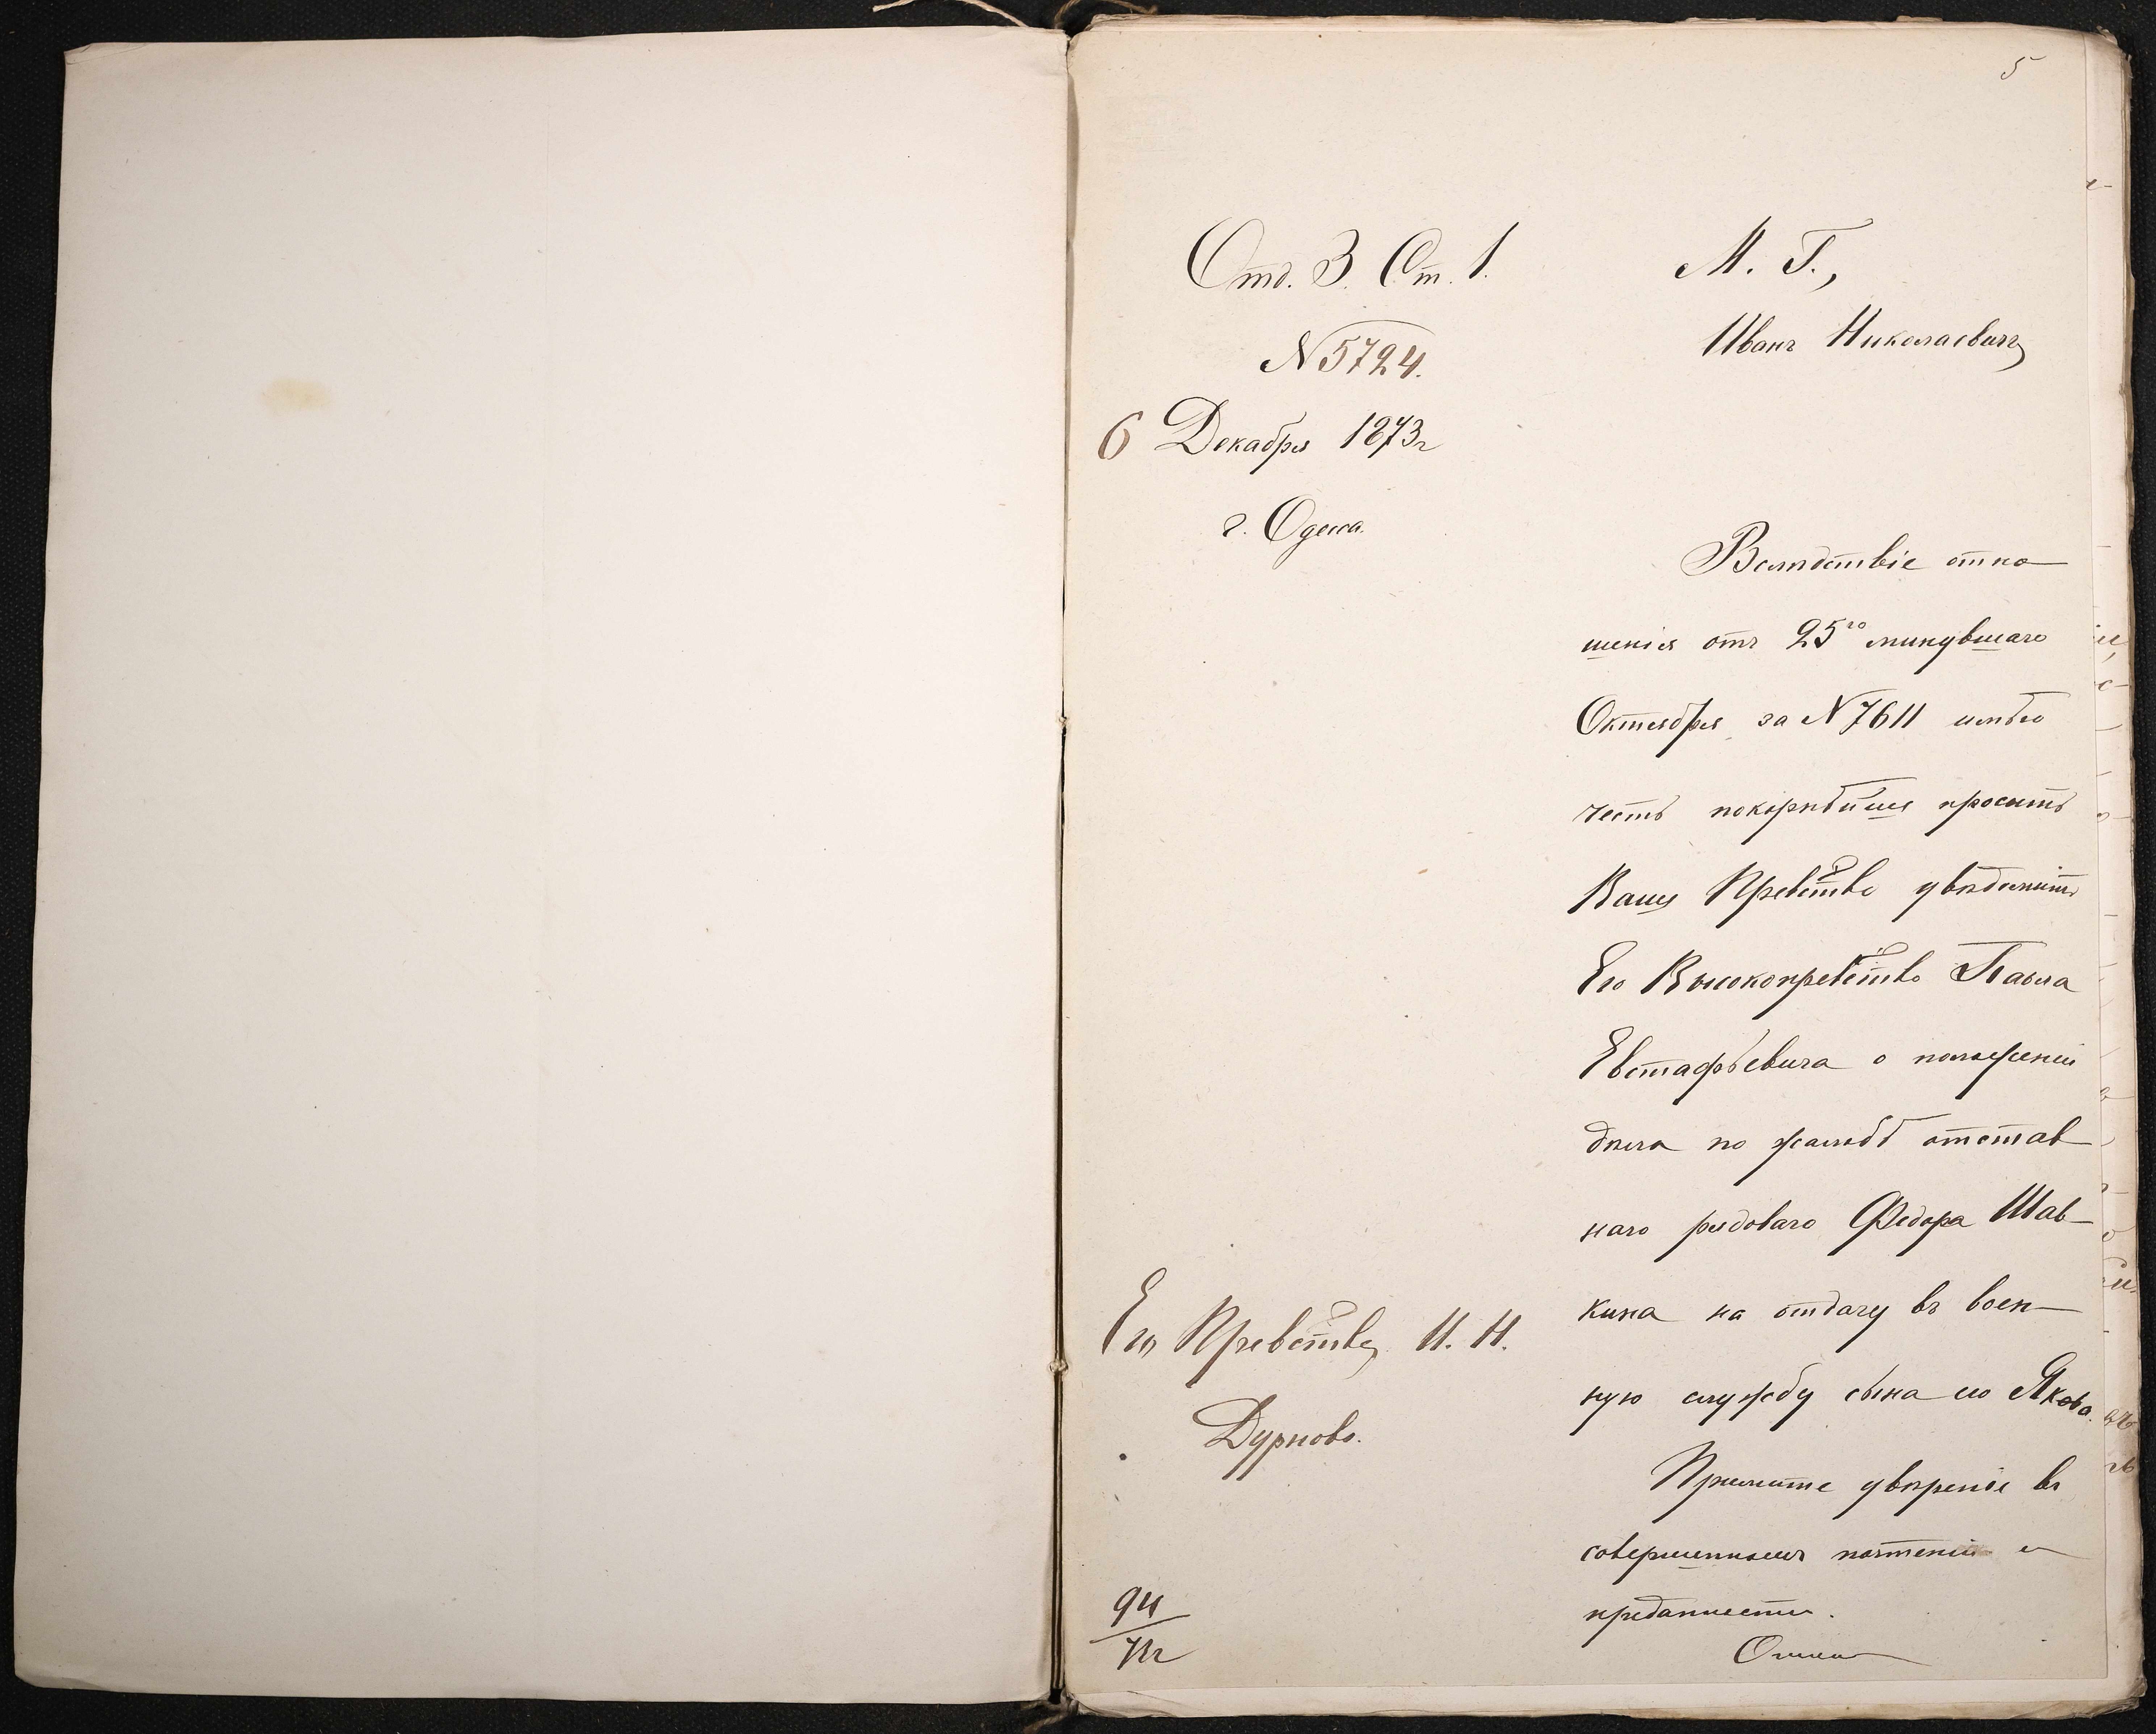 5
Отд. 3. Ст. 1.
N 5724.
6 Декабря 1873 г
г. Одесса.
М. Г.,
Иванъ Николаевичъ
Вслѣдствіе отно-
шенія отъ 25го минувшаго
Октября за N 7611 имѣю
честь покорнѣйше просить
Ваше Прев-ство увѣдомить
Его Высокопрев-ство Павла
Евстафьевича о положеніи
дѣла по жалобѣ отстав-
наго рядоваго Федора Шав-
кина на отдачу въ воен-
ную службу сына его Якова.
Примите увѣреніе въ
совершенномъ почтеніи и
преданности.
Его Прев-ству И. Н.
Дурново.
94
73 г